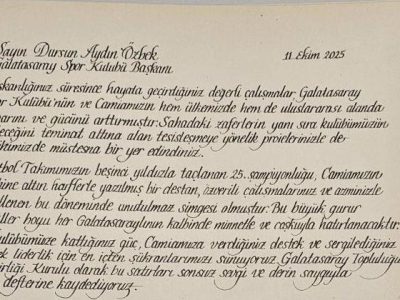 Sayın Dursun Aydın Özbek 11 Ekim 2025
Galatasaray Spor Kulübü Başkanı
şkanlığınız süresince hayata geçirdiğiniz değerli çalışmalar Galatasaray
or Kulübü'nün ve Camiamızın hem ülkemizde hem de uluslararası alanda
arını ve gücünü arttırmıştır. Sahadaki zaferlerin yanı sıra kulübümüzün
eceğini teminat altına alan tesisleşmeye yönelik projelerinizle de
ihimizde müstesna bir yer edindiniz.
tbol Takımımızın beşinci yıldızla taçlanan 25. şampiyonluğu, Camiamızın
ihine altın harflerle yazılmış bir destan, özverili çalışmalarınız ve azminizle
llenen bu döneminde unutulmaz simgesi olmuştur. Bu büyük gurur
iller boyu her Galatasaraylının kalbinde minnetle ve coşkuyla hatırlanacaktır.
ulübümüze kattığınız güç, Camiamıza verdiğiniz destek ve sergilediğiniz
ek liderlik için en içten şükranlarımızı sunuyoruz. Galatasaray Topluluğu
irliği Kurulu olarak bu satırları sonsuz sevgi ve derin saygıyla
defterine kaydediyoruz.